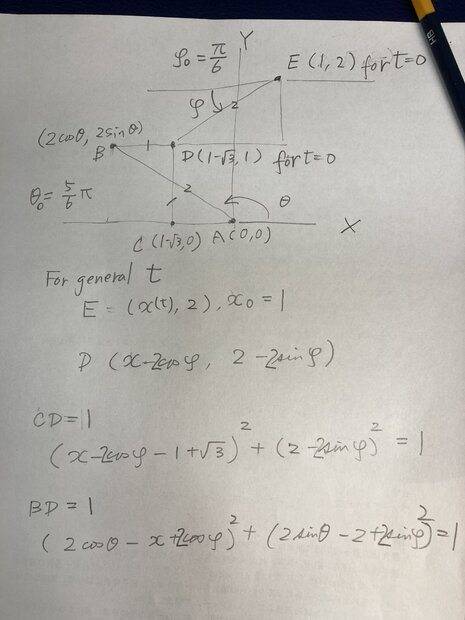 Y
φ₀ = π/6
E (1, 2) for t=0
φ
2
(2cosθ, 2sinθ)
B
1
D(1-√3, 1) for t=0
θ₀ = 5/6 π
2
1
θ
X
C (1-√3, 0) A(0,0)
For general t
E = (x(t), 2), x₀ = 1
D (x-2cosφ, 2-2sinφ)
CD=1
(x-2cosφ-1+√3)² + (2-2sinφ)² = 1
BD = 1
(2cosθ-x+2cosφ)² + (2sinθ-2+2sinφ)² = 1
BH